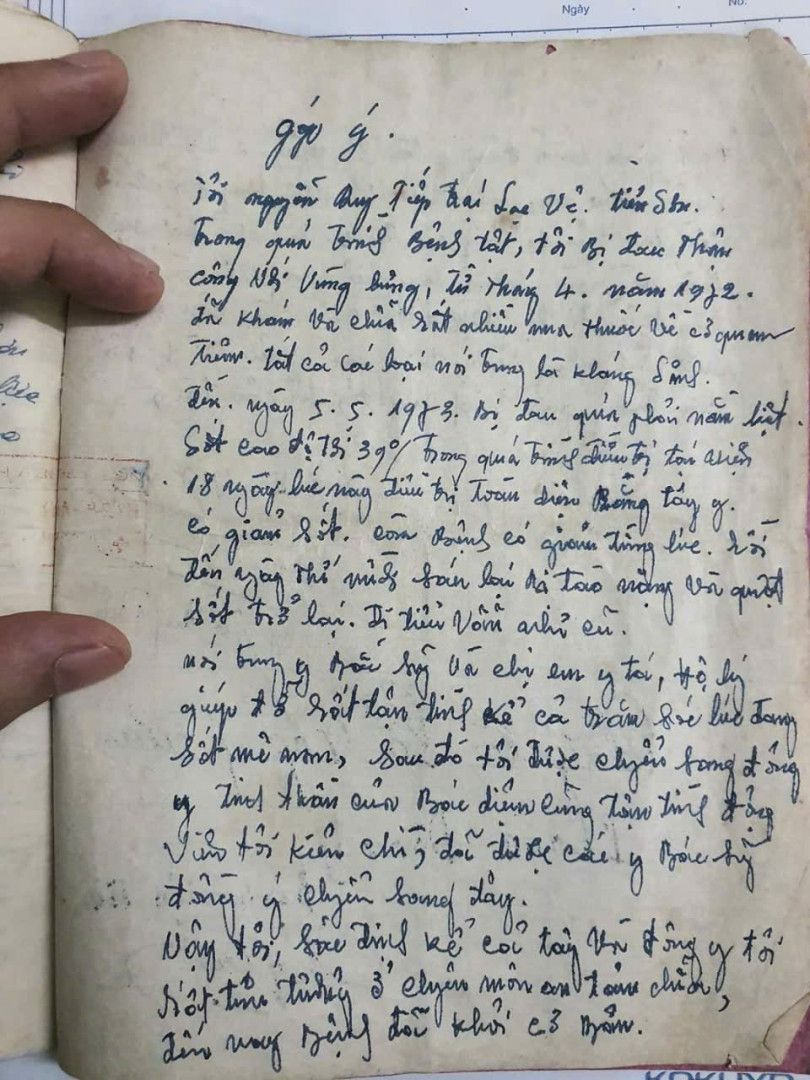 Ngày
No.
góp ý.
Tôi nguyễn Duy Tiếp trại Lạc Vệ. tiên Sơn.
Trong quá trình Bệnh tật, tôi Bị đau Thận
công Nhi Vùng lưng, từ tháng 4. năm 1972.
đã khám và chữa rất nhiều mua thuốc về cơ quan
Tiêm. tất cả các loại nói trung là kháng Sinh.
đến. ngày 5.5.1973. Bị đau quản phải nằm liệt.
Sốt cao độ tới 39° trong quá trình điều trị tại viện
18 ngày lúc này điều trị toàn diện Bằng tây y.
có giảm Sốt. còn Bệnh có giảm từng lúc. rồi
đến ngày thứ mười Sáu lại Bị tao nặng và quật
Sốt trở lại. đi tiểu vẫn như cũ.
nói trung y Bác Sỹ và chị em y tá, hộ lý
giúp đỡ rất tận tình kể cả trăm Sóc lúc đang
Sốt mê man, Sau đó tôi được chyển Sang đông
y tinh thần của Bác diệm cũng tận tình động
Viên tôi kiên chì, đã được các y Bác Sỹ
đồng ý chyển Sang đây.
Vậy tôi, xác định kể cả tây và đông y tôi
rất tin tưởng ở chyên môn an tâm chữa,
đến nay Bệnh đã khỏi cơ Bản.
KOKUYO